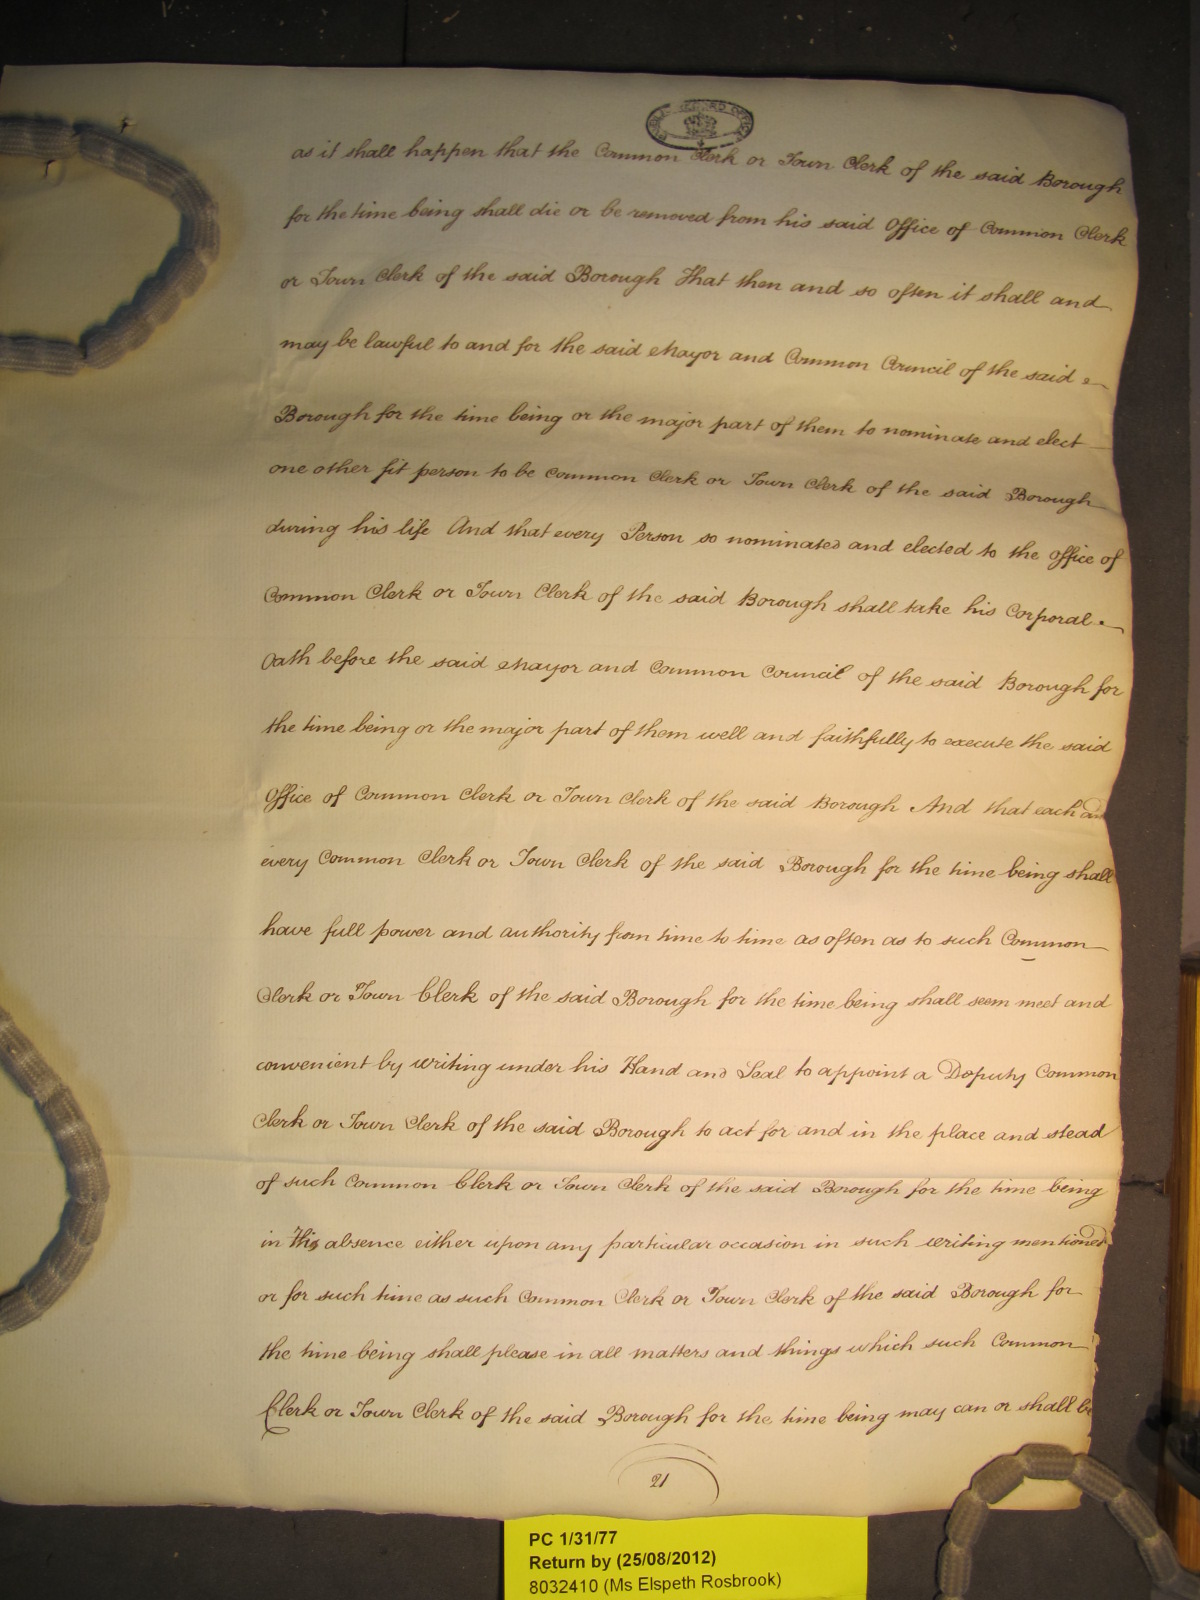 PUBLIC RECORD OFFICE
as it shall happen that the Common Clerk or Town Clerk of the said Borough
for the time being shall die or be removed from his said Office of Common Clerk
or Town Clerk of the said Borough That then and so often it shall and
may be lawful to and for the said Mayor and Common Council of the said
Borough for the time being or the major part of them to nominate and elect
one other fit person to be Common Clerk or Town Clerk of the said Borough
during his life And that every Person so nominated and elected to the Office of
Common Clerk or Town Clerk of the said Borough shall take his Corporal
Oath before the said Mayor and Common Council of the said Borough for
the time being or the major part of them well and faithfully to execute the said
Office of Common Clerk or Town Clerk of the said Borough And that each and
every Common Clerk or Town Clerk of the said Borough for the time being shall
have full power and authority from time to time as often as to such Common
Clerk or Town Clerk of the said Borough for the time being shall seem meet and
convenient by writing under his Hand and Seal to appoint a Deputy Common
Clerk or Town Clerk of the said Borough to act for and in the place and stead
of such Common Clerk or Town Clerk of the said Borough for the time being
in his absence either upon any particular occasion in such writing mentioned
or for such time as such Common Clerk or Town Clerk of the said Borough for
the time being shall please in all matters and things which such Common
Clerk or Town Clerk of the said Borough for the time being may can or shall be
21
PC 1/31/77
Return by (25/08/2012)
8032410 (Ms Elspeth Rosbrook)